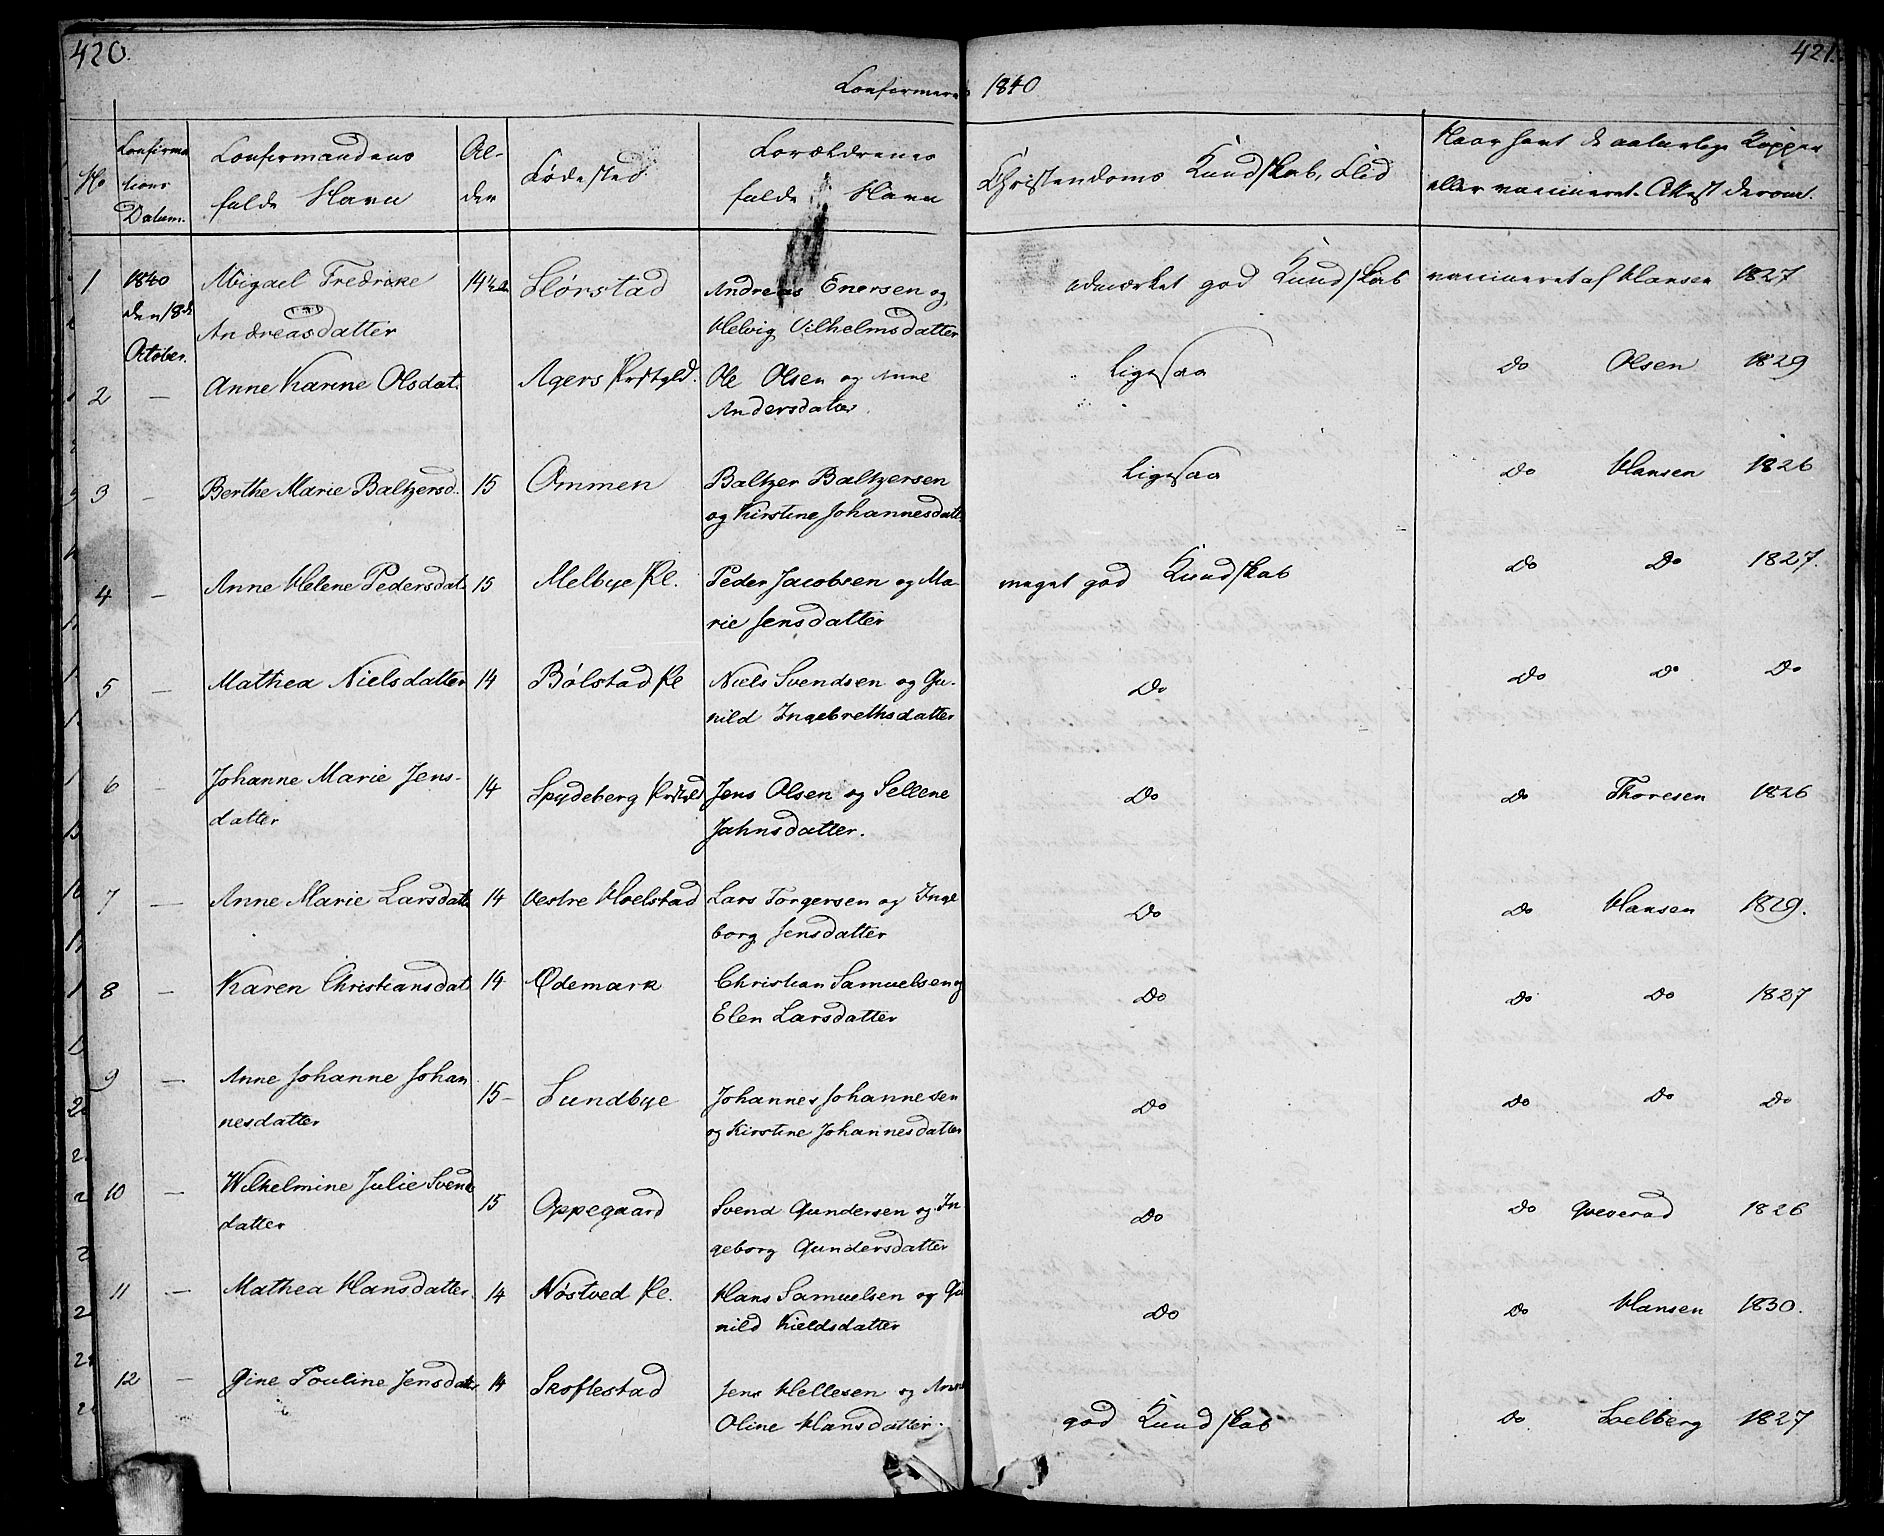 420.
421.
Confirmerede 1840
No
Confirma
tions
Datum.
Confirmandens
fulde Navn
Al-
der
Fødested
Forældrenes
fulde Navn
Christendoms Kundskab, Flid
Naar havt de naturlige Kopper
eller vaccineret. Attest derom.
1
1840
den 18d
October.
Abigael Fredrikke
Andreasdatter
14½
Andreas Enersen og
Helvig Vilhelmsdatter
udmærket god Kundskab
vaccineret af Hansen 1827
2 —
Anne Karine Olsdat.
Agers Prstgld.
Ole Olsen og Anne
Andersdatter.
ligesaa
Do Olsen 1829
3 —
Berthe Marie Baltzersd.
15
Ommen
Baltzer Baltzersen
og Kirstine Johannesdatt.
ligesaa
Do Hansen 1826
4 —
Anne Helene Pedersdat.
15
Melbye Pl.
Peder Jacobsen og Ma-
rie Jensdatter
meget god Kundskab
Do Do 1827.
5 —
Mathea Nielsdatter
14
Bølstad Pl
Niels Svendsen og Gu-
nild Ingebrethsdatter
Do
Do Do Do
6 —
Johanne Marie Jens-
datter
14
Spydeberg Prstgld
Jens Olsen og Sellene
Jahnsdatter.
Do
Do Thoresen 1826
7 —
Anne Marie Larsdatt
14
Vestre Hoelstad
Lars Torgersen og Inge
borg Jensdatter
Do
Do Hansen 1829.
8 —
Karen Christiansdat
14
Ødemark
Christian Samuelsen og
Elen Larsdatter
Do
Do Do 1827
9 —
Anne Johanne Johan
nesdatter
15
Sundbye
Johannes Johannesen
og Kirstine Johannesdatter
Do
Do Do Do
10 —
Wilhelmine Julie Svend
datter
15
Oppegaard
Svend Gundersen og In
geborg Gundersdatter
Do
Do Qveverad 1826
11 —
Mathea Hansdatter.
14
Nøstved Pl.
Hans Samuelsen og Gu
nild Kieldsdatter
Do
Do Hansen 1830.
12 —
Gine Pouline Jensdatt
14
Skoflestad
Jens Hellesen og Anne
Oline Hansdatter.
god Kundskab
Do 1827